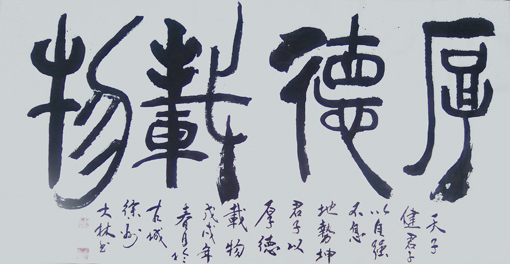 厚德載物
天行
健君子
以自强
不息
地勢坤
君子以
厚德
載物
戊戌年
春月於
古城
徐州
大林書